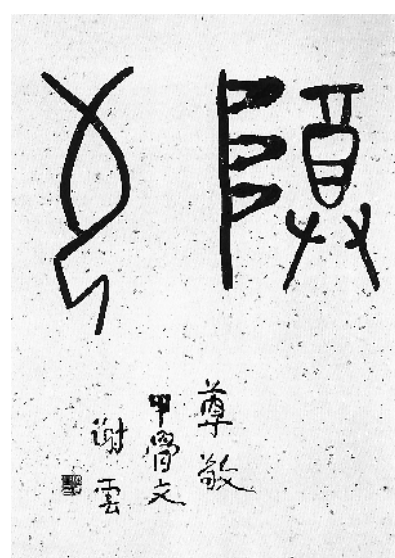 尊敬
尊敬
甲骨文
谢雲